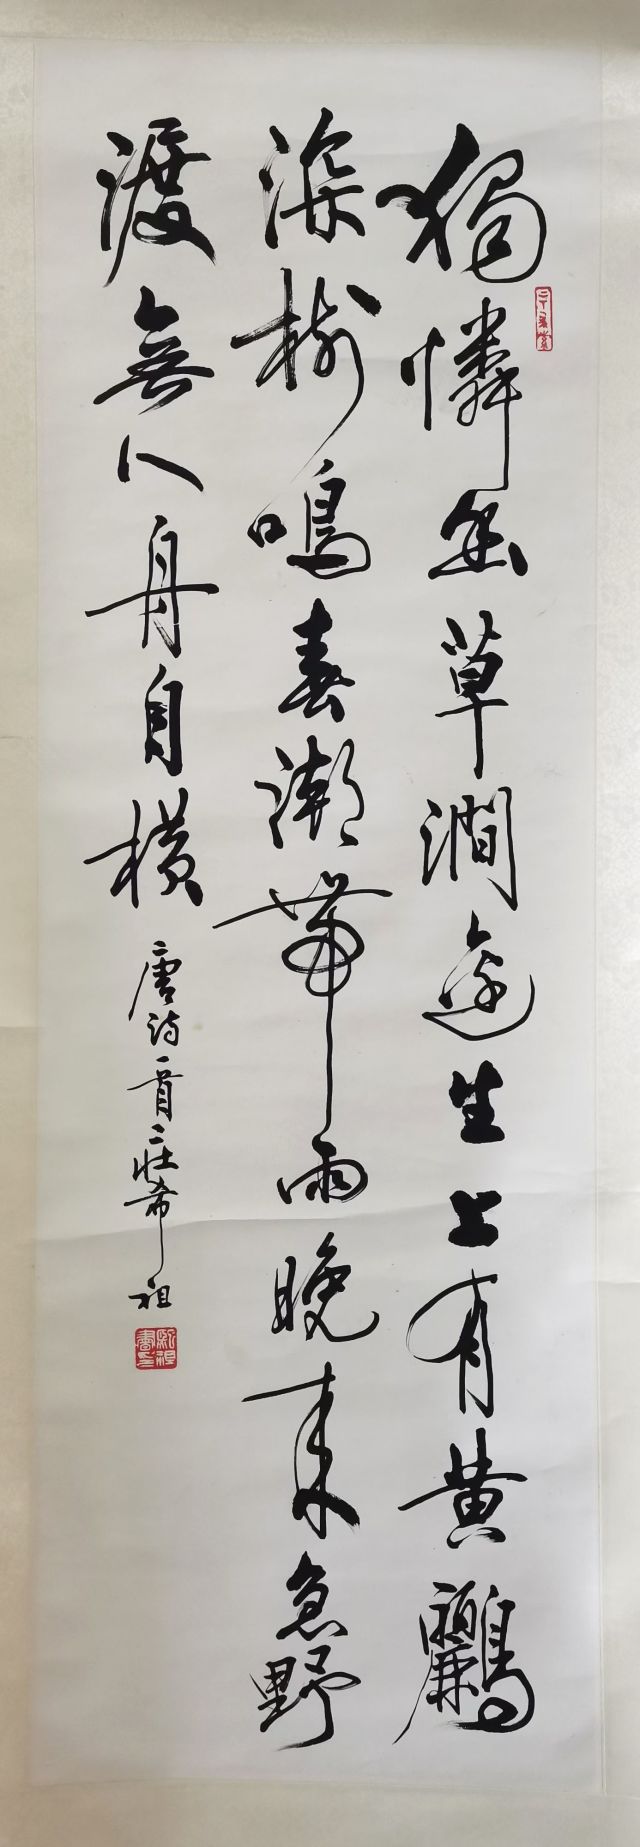 獨憐幽草澗邊生上有黄鸝
深樹鳴春潮帶雨晚來急野
渡無人舟自横
唐詩一首莊希祖